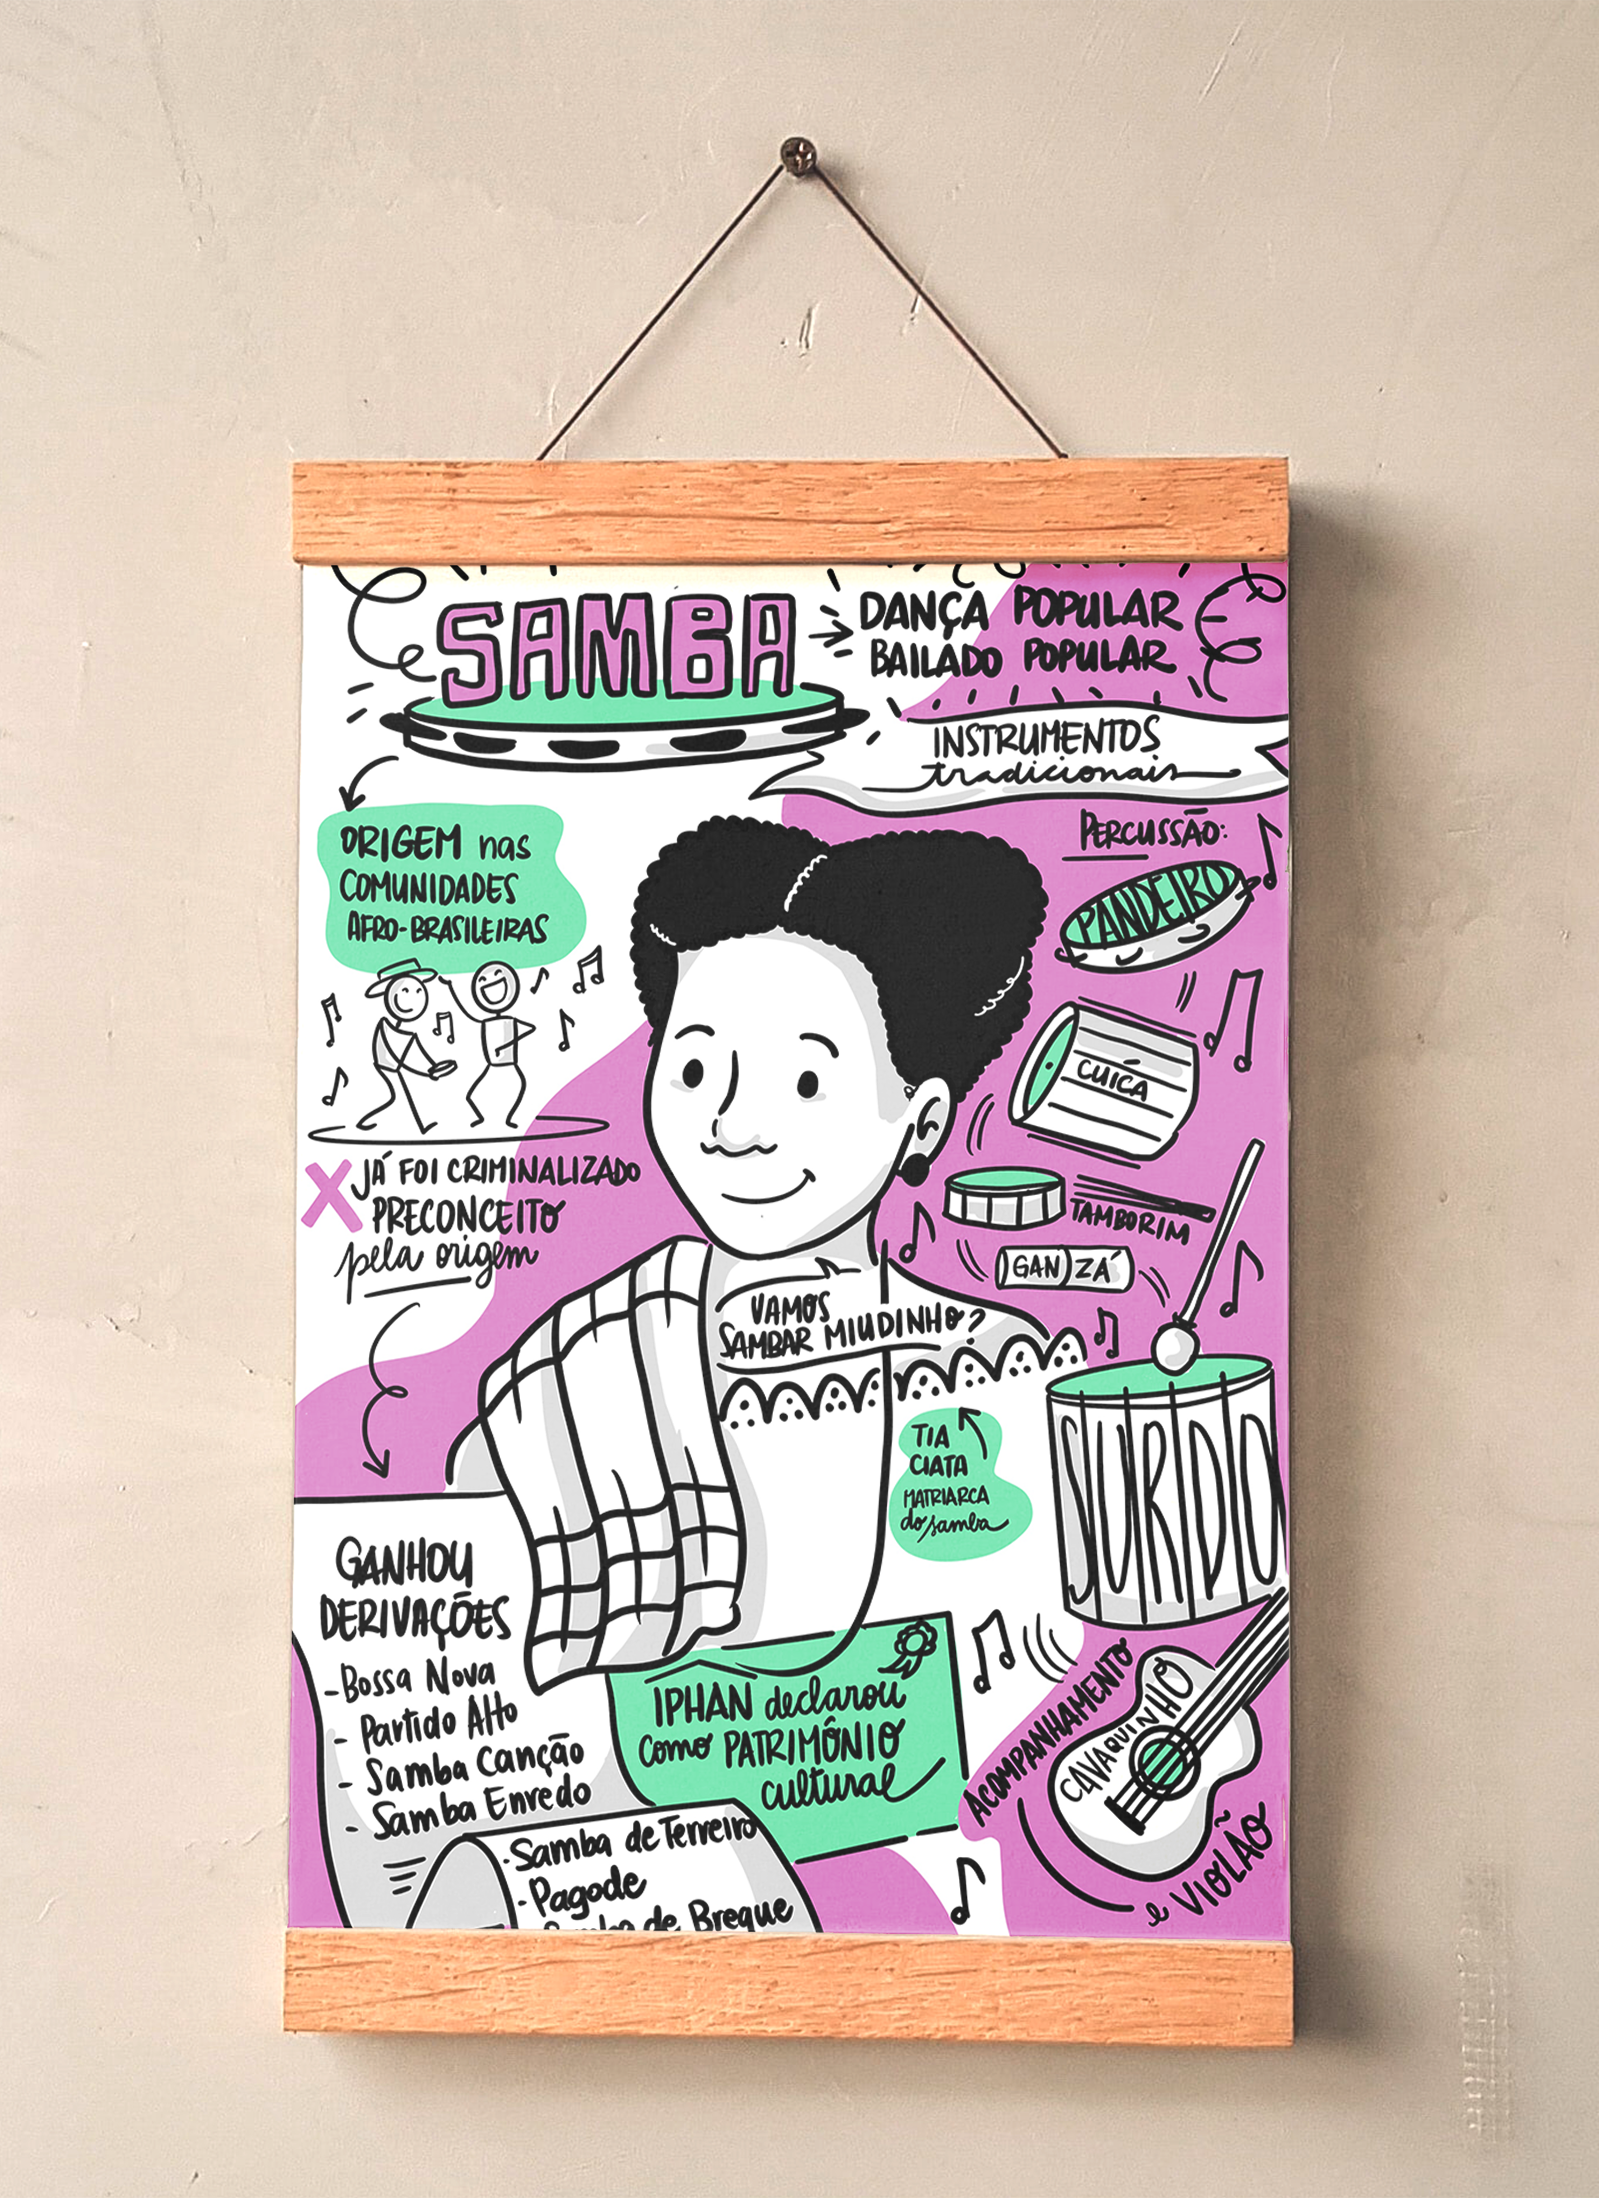 SAMBA
DANÇA POPULAR
BAILADO POPULAR
INSTRUMENTOS
tradicionais
ORIGEM nas
COMUNIDADES
AFRO-BRASILEIRAS
PERCUSSÃO:
PANDEIRO
CUÍCA
TAMBORIM
GANZÁ
SURDO
X JÁ FOI CRIMINALIZADO
PRECONCEITO
pela origem
VAMOS
SAMBAR MIUDINHO?
TIA
CIATA
MATRIARCA
do samba
GANHOU
DERIVAÇÕES
- Bossa Nova
- Partido Alto
- Samba Canção
- Samba Enredo
- Samba de Terreiro
- Pagode
- Samba de Breque
IPHAN declarou
como PATRIMÔNIO
cultural
ACOMPANHAMENTO
CAVAQUINHO
e VIOLÃO